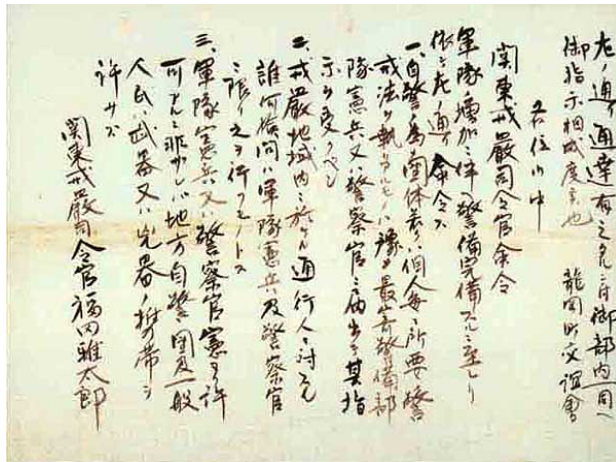 左ノ通通達有之候ニ付御部内一同ヘ
御指示相成度候也 龍岡町交誼會
各位御中
関東戒嚴司令官命令
軍隊増加ニ伴ヘ警備完備スルニ至レリ
依テ左ノ通リ命令ス
一、自警ノ為團体若クハ個人毎ニ所要警
戒法ヲ執ルモノハ豫メ最寄警備部
隊憲兵又ハ警察官ニ届出テ其指
示ヲ受クベシ
二、戒嚴地域内ニ於ケル通行人ニ対スル
誰何検問ハ軍隊憲兵及警察官
ニ限リ之ヲ行フモノトス
三、軍隊憲兵又ハ警察官憲ヨリ許
可スルニ非ザレバ地方自警団及一般
人民ハ武器又ハ兇器ノ携帯ヲ
許サズ
関東戒嚴司令官福田雅太郎